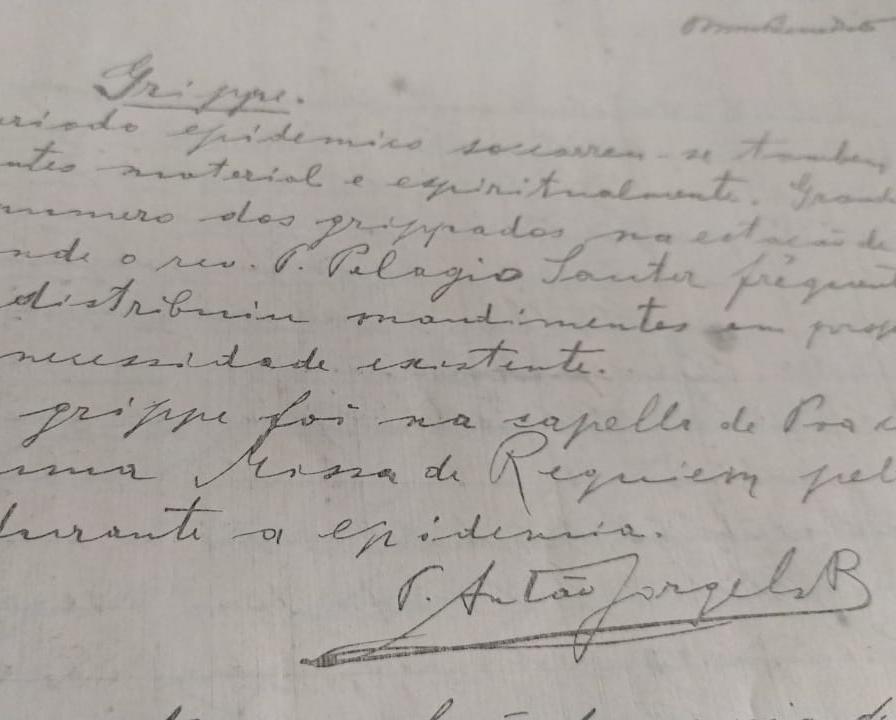 Grippe.
eriodo epidemico soccorreu-se tambem
ntes material e espiritualmente. Grand
numero dos grippados na estação de
nde o rev. P. Pelagio Sauter frequent
distribuiu mandimentos em prop
necessidade existente.
grippe foi na capella de Poa c
uma Missa de Requiem pel
durante a epidemia.
P. Antão Jorge